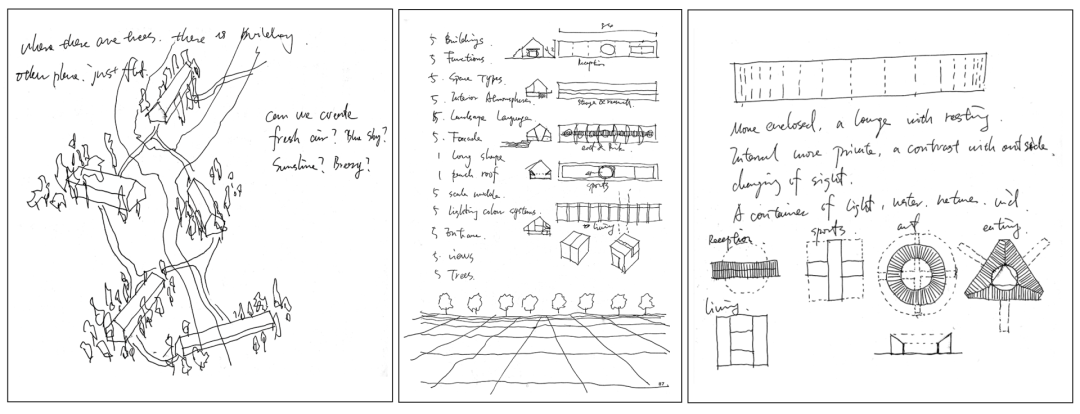 where there are trees. there is building.
other place. just flat.
can we create
fresh air? Blue sky?
Sunshine? Breezy?
5 Buildings
5 Functions.
5. Space Types.
5. Interior Atmosphere
5. Landscape Language
5. Facade
1 long shape
1 pitch roof
5 scale
5 lighting colour systems.
Entrance
5. views
5 Trees
Reception
sports
living
More enclosed, a lounge with resting.
Internal more private, a contrast with outside.
changing of sight.
A container of light, water, nature, wind.
Reception
sports
art
eating
living